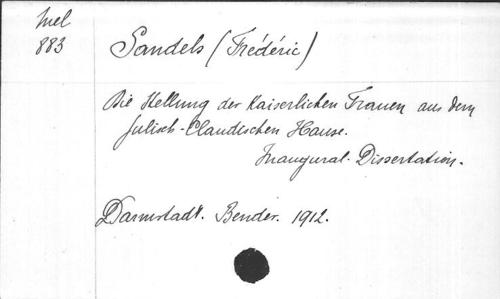 Mel
883
Sandels (Frédéric)
Die Stellung der Kaiserlichen Frauen aus dem
Julisch-Claudischen Hause.
Inaugural-Dissertation.
Darmstadt. Bender. 1912.